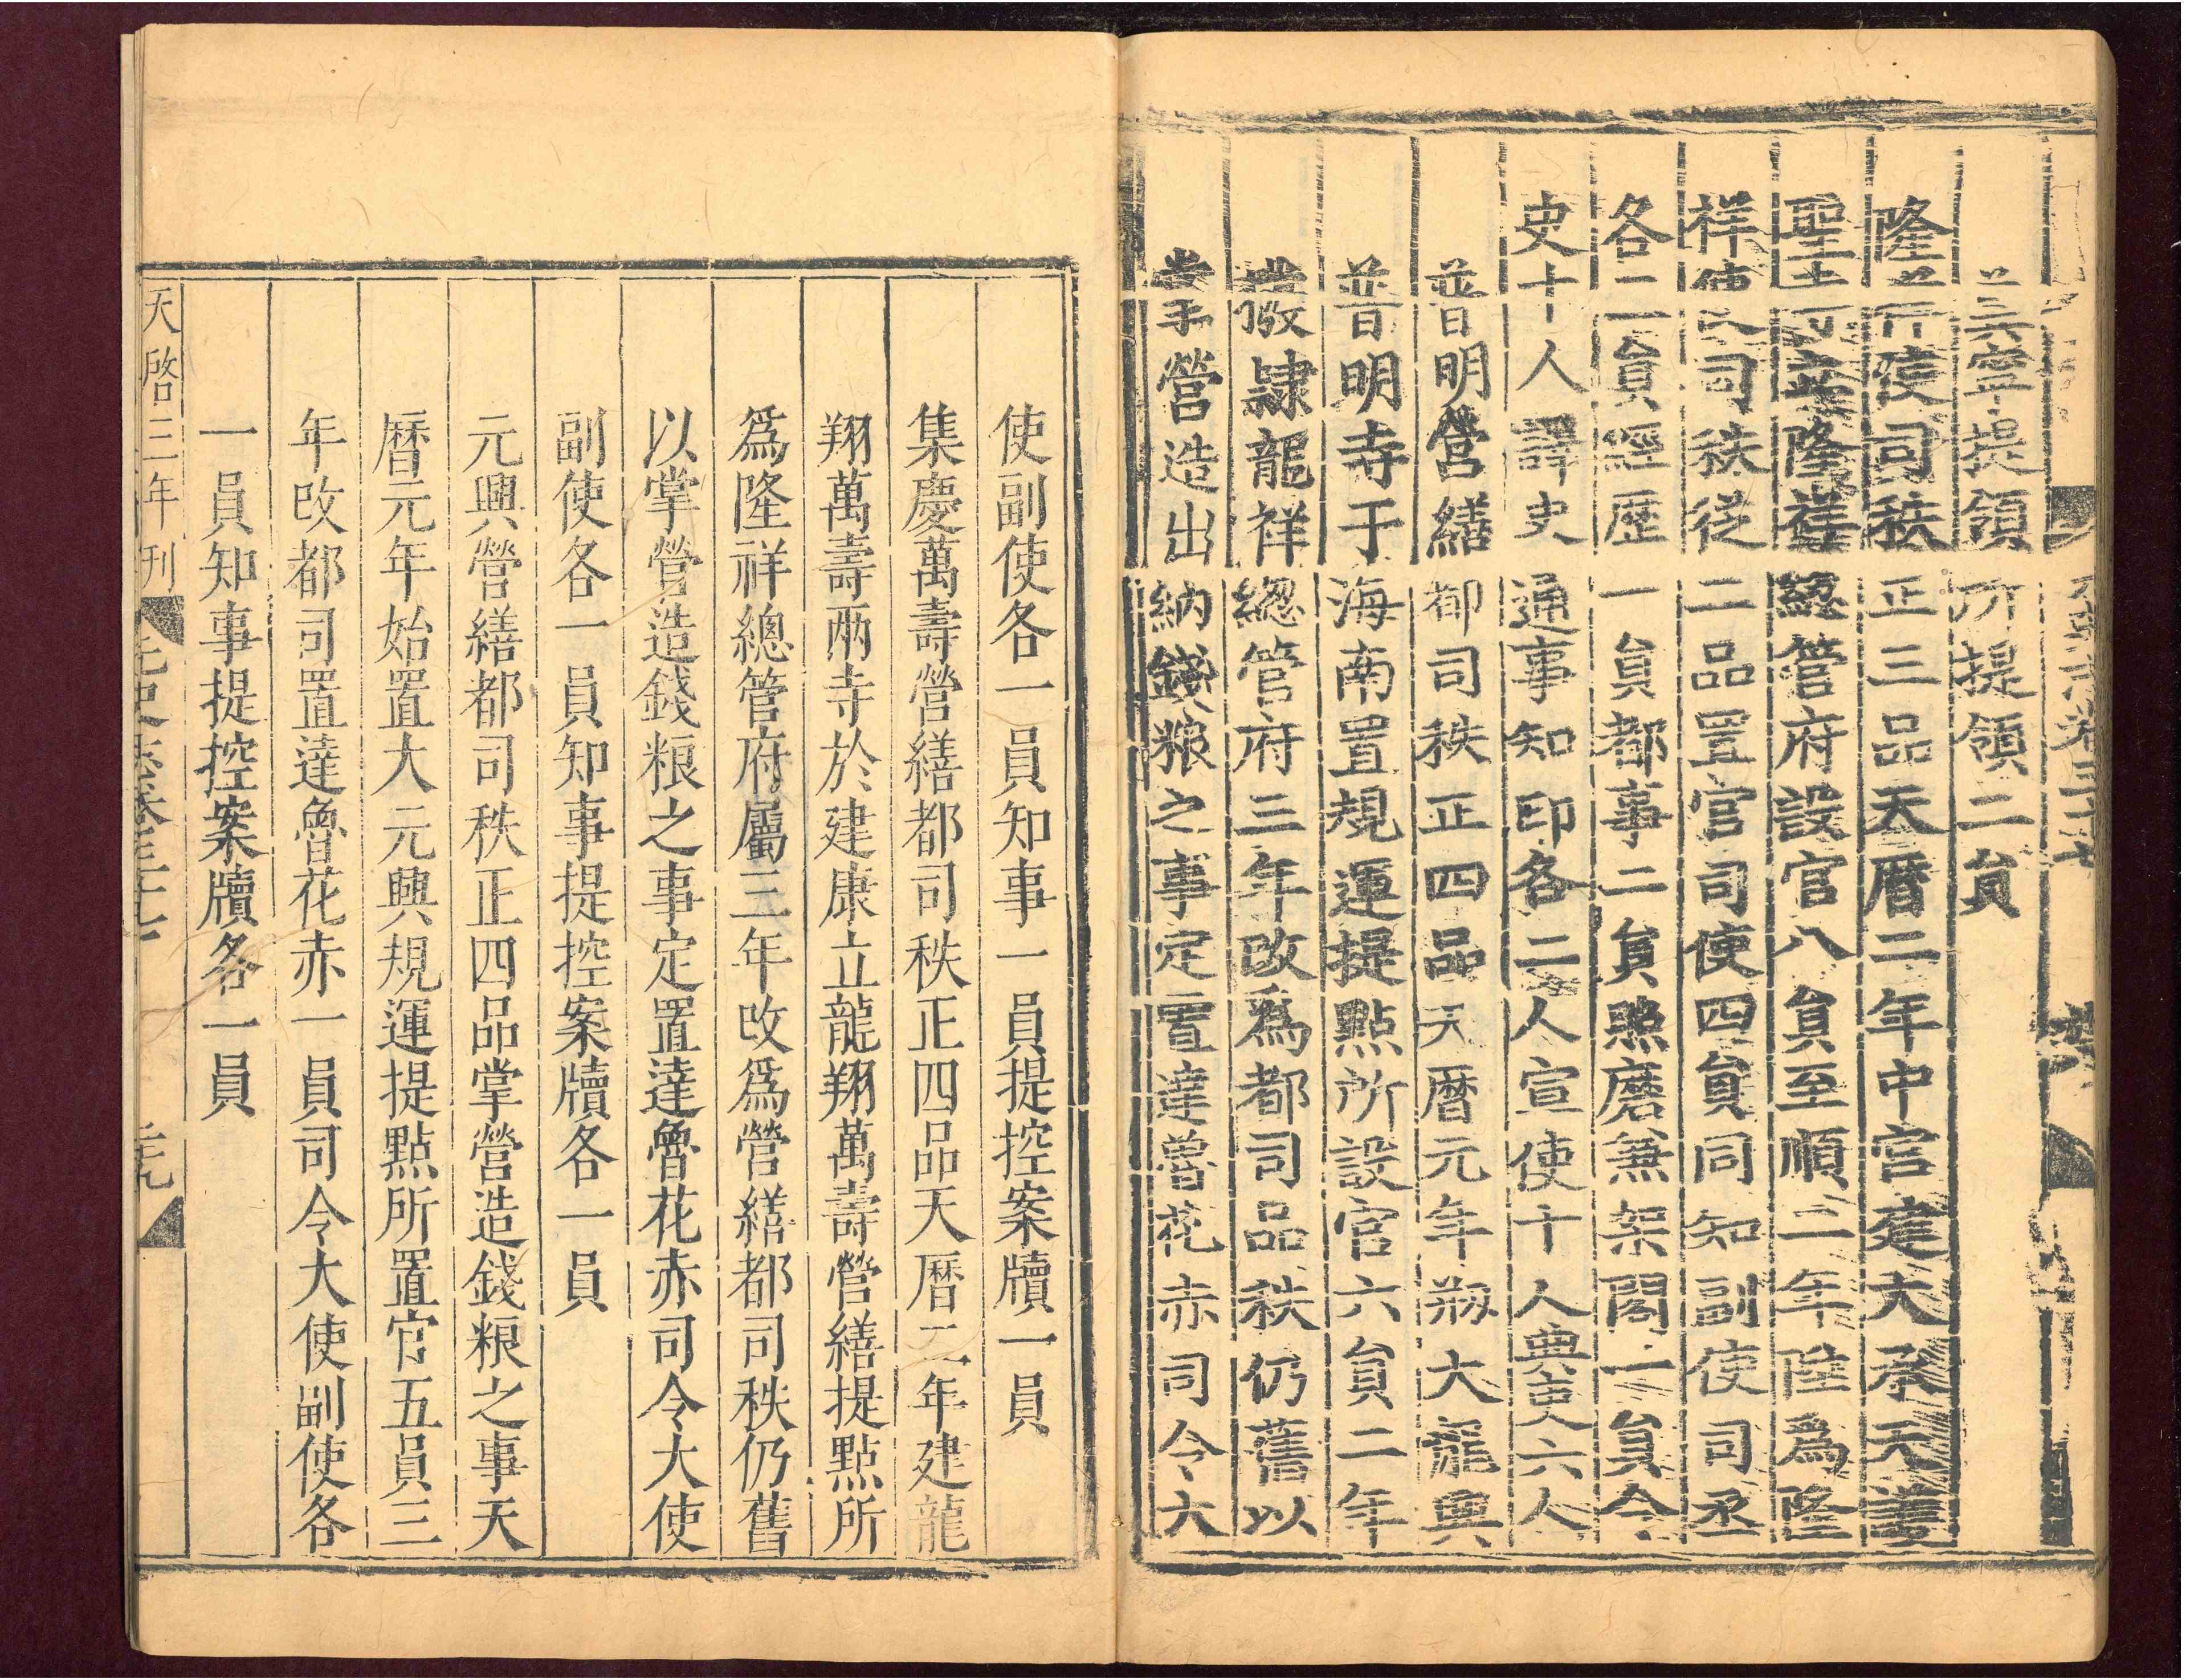 提領所提領二員
隆祥使司秩正三品天曆二年中宮建大承天護
聖寺司立隆祥總管府設官八員至順二年陞為隆
祥使司秩從二品置官司使四員同知副使司丞
各二員經歷一員都事二員照磨兼架閣一員令
史十人譯史通事知印各二人宣使十人典吏六人
普明營繕都司秩正四品天曆元年剏大龍興
普明寺于海南置規運提點所設官六員二年
撥隸龍祥總管府三年改為都司品秩仍舊以
掌營造出納錢粮之事定置達魯花赤司令大
使副使各一員知事一員提控案牘一員
集慶萬壽營繕都司秩正四品天曆二年建龍
翔萬壽兩寺於建康立龍翔萬壽營繕提點所
為隆祥總管府屬三年改為營繕都司秩仍舊
以掌營造錢粮之事定置達魯花赤司令大使
副使各一員知事提控案牘各一員
元興營繕都司秩正四品掌營造錢粮之事天
曆元年始置大元興規運提點所置官五員三
年改都司置達魯花赤一員司令大使副使各
一員知事提控案牘各一員
天啓三年刊 元史志卷三十七 三十九